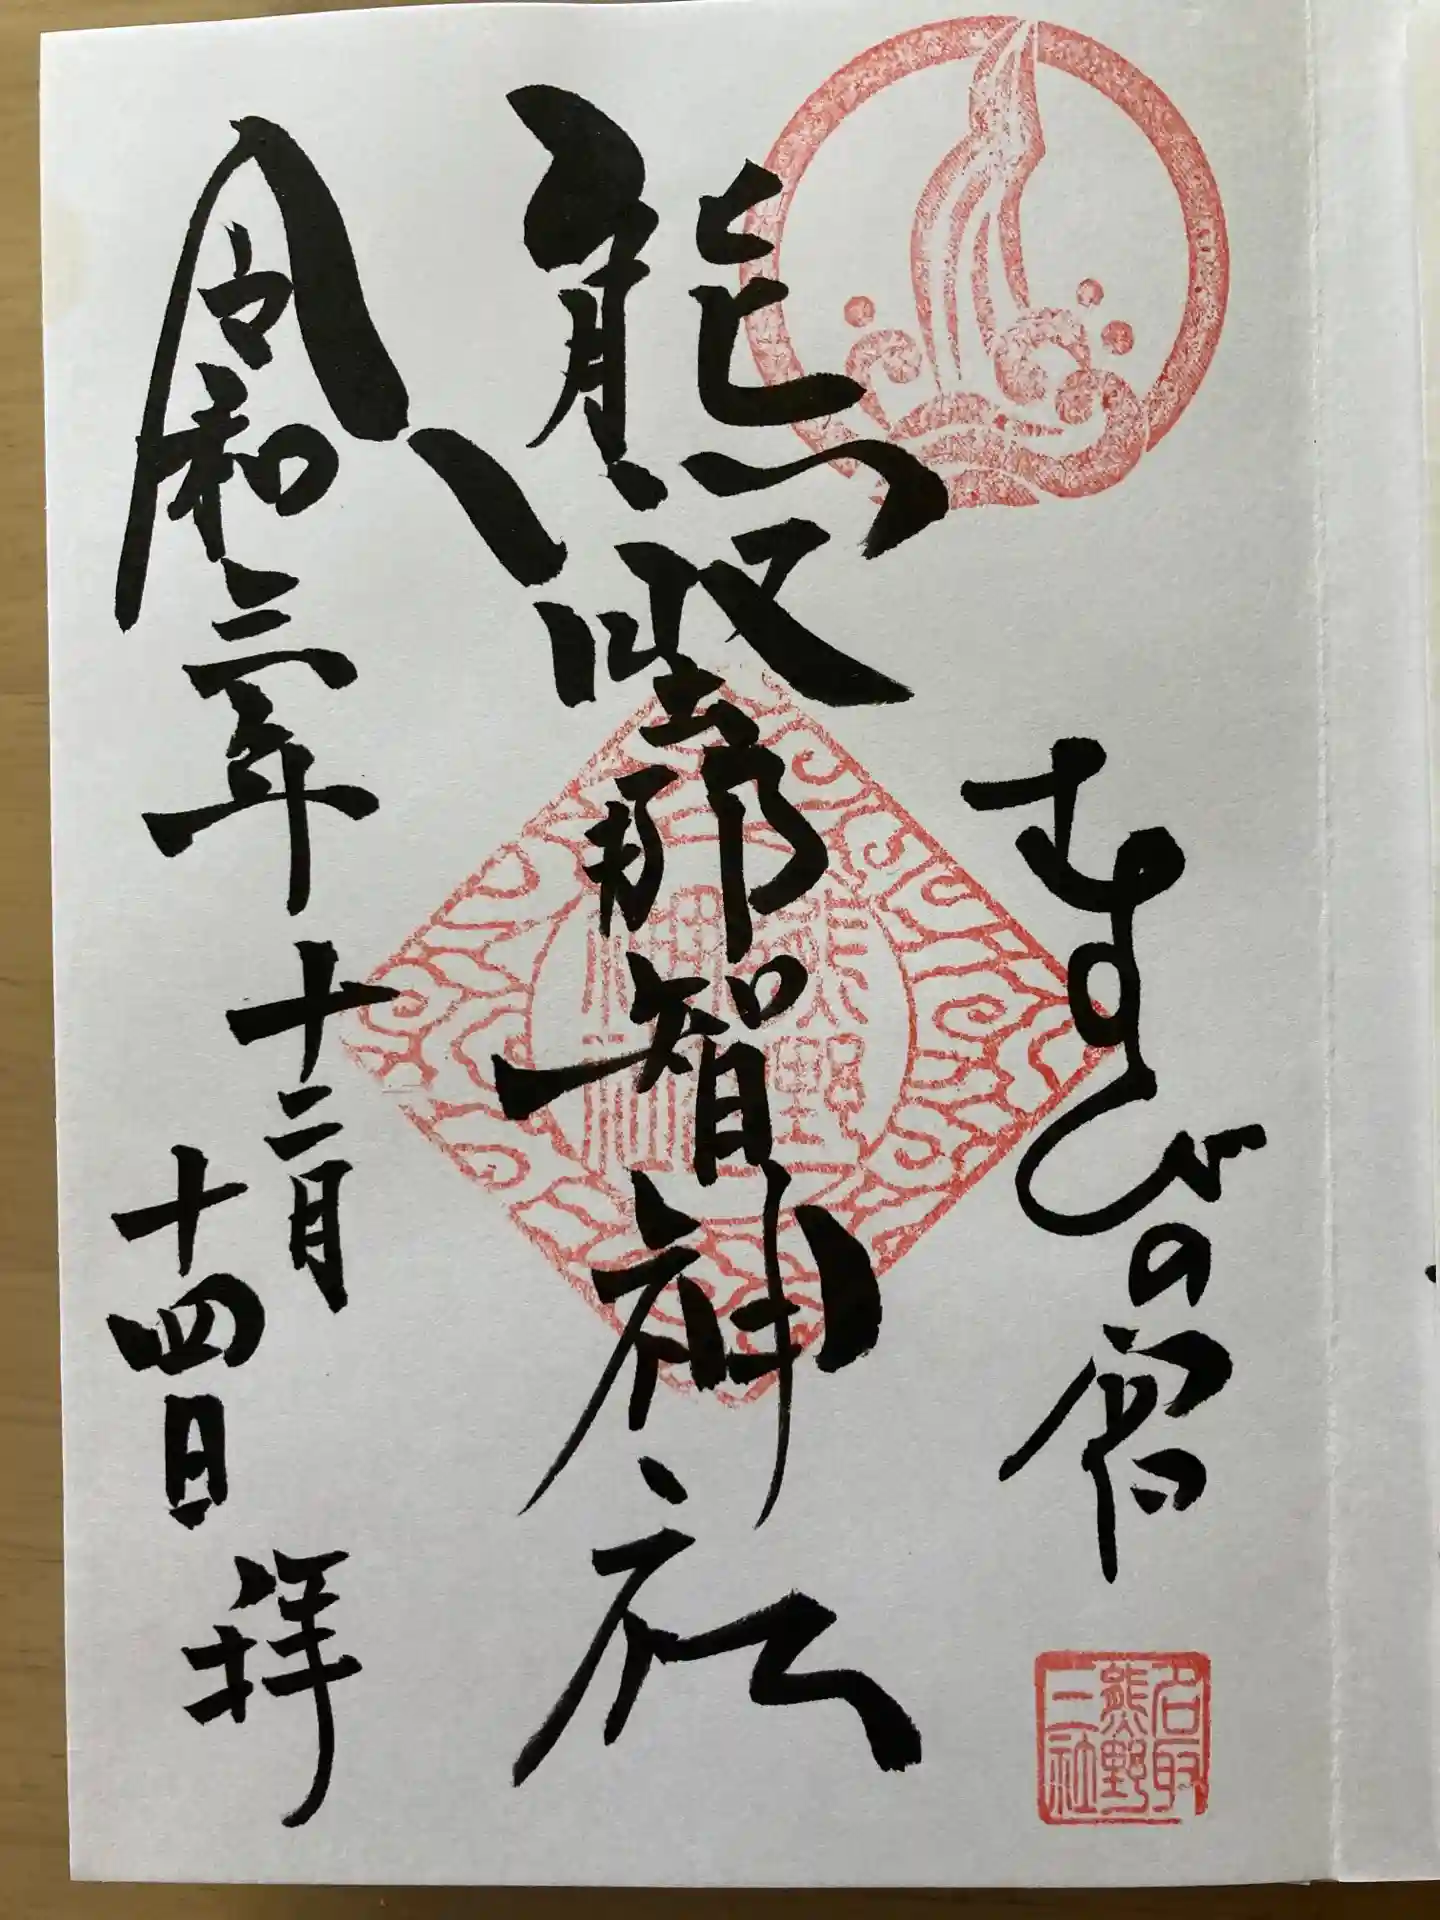 むすびの宿
名取
熊野
三社
熊野那智神社
熊野
神社
令和三年十二月十四日 拝